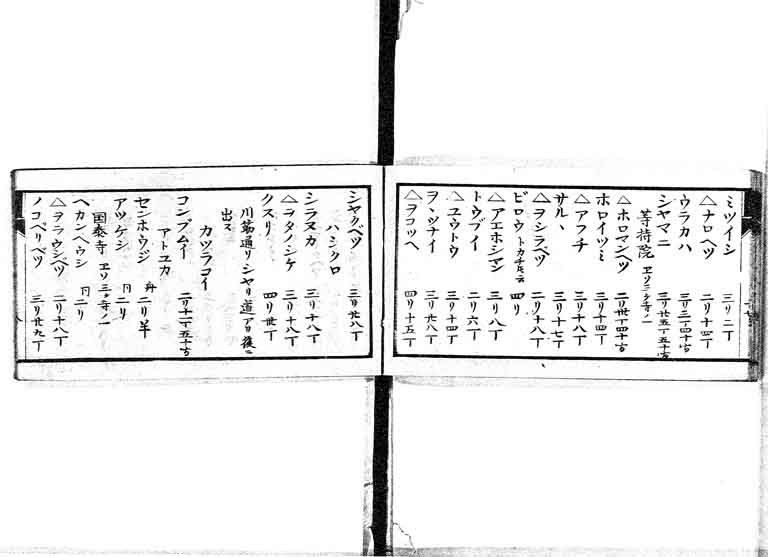 ミツイシ 三リ二丁
△ナロヘツ 二リ十四丁
ウラカハ 三リ二丁四十間
シヤマニ 三リ廿五丁五十間
等持院 ヱソ三ケ寺ノ一
△ホロマンヘツ 二リ廿一丁四十間
ホロイツミ 三リ十四丁
△アフチ 三リ十八丁
サルヽ 三リ十七丁
△ヲシラヘツ 二リ十八丁
ビロウ トカチトモ云 四リ
△アエホシマン 三リ八丁
トウブイ 二リ六丁
△ユウトウ 三リ十四丁
ヲヽツナイ 三リ廿八丁
△ヲコツヘ 四リ十五丁
シヤクベツ 三リ廿八丁
ハシクロ
シラヌカ 三リ十八丁
△ヲタノシケ 二リ十八丁
クスリ 四リ廿丁
川筋通リシヤリ道アリ後ニ
出ス
カツラコイ
コンブムイ 二リ十一丁五十間
アトエカ
センホウジ 舟二リ半
アツケシ 同二リ
国泰寺 ヱソ三ケ寺ノ一
ヘカンヘウシ 同二リ
△ヲラウンベツ 二リ十八丁
ノコベリベツ 三リ廿九丁